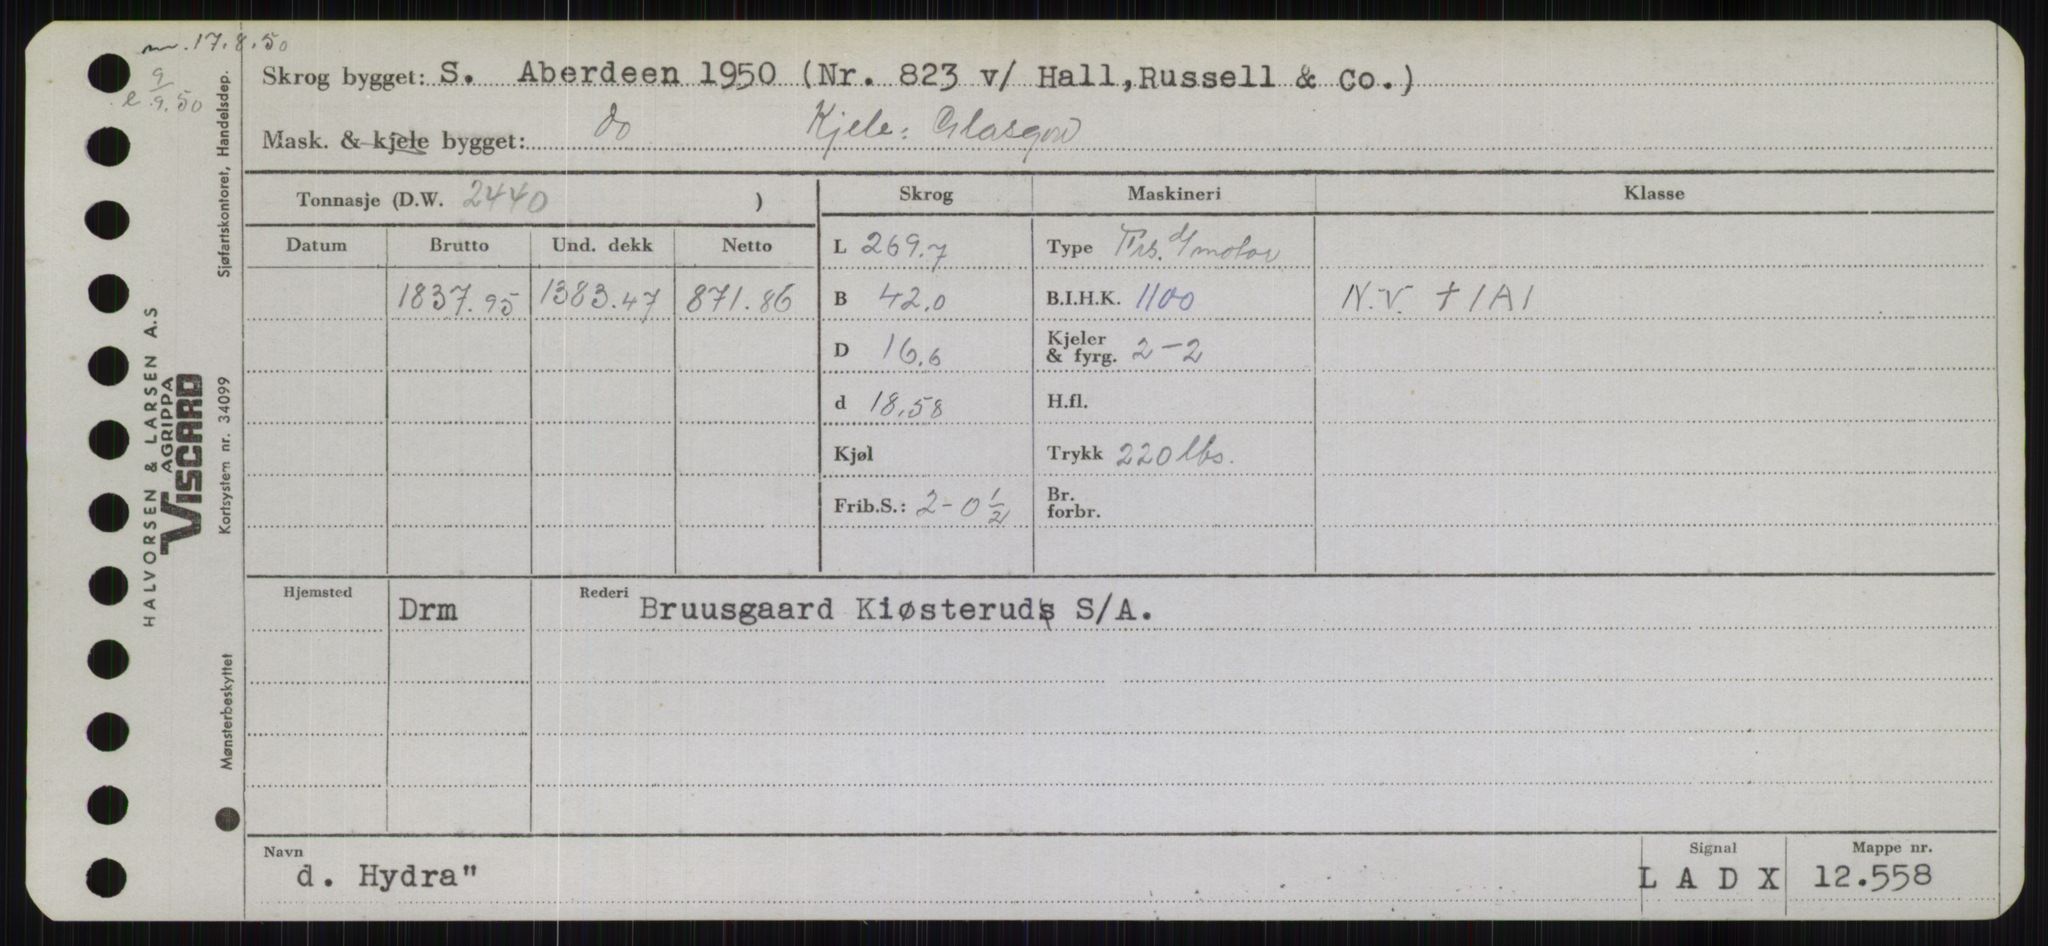 17.8.50
9
9.50
Skrog bygget: S. Aberdeen 1950 (Nr. 823 v/ Hall,Russell & Co.)
Mask. & kjele bygget: do Kjele: Glasgow
Tonnasje (D.W. 2440 )
Skrog Maskineri Klasse
Datum Brutto Und. dekk Netto
L 269.7 Type
1837.95 1383.47 871.86
B 42.0 B.I.H.K. 1100 N.V. + 1A1
D 16.6 Kjeler & fyrg. 2-2
d 18.58 H.fl.
Kjøl Trykk 220 lbs.
Frib.S.: 2-0 1/2 Br. forbr.
Hjemsted Drm Rederi Bruusgaard Kiøsteruds S/A.
Navn Signal Mappe nr.
d. Hydra" L A D X 12.558
HALVORSEN & LARSEN A.S
AGRIPPA
VISCARD
Sjøfartskontoret, Handelsdep.
Kortsystem nr. 34099
Mønsterbeskyttet